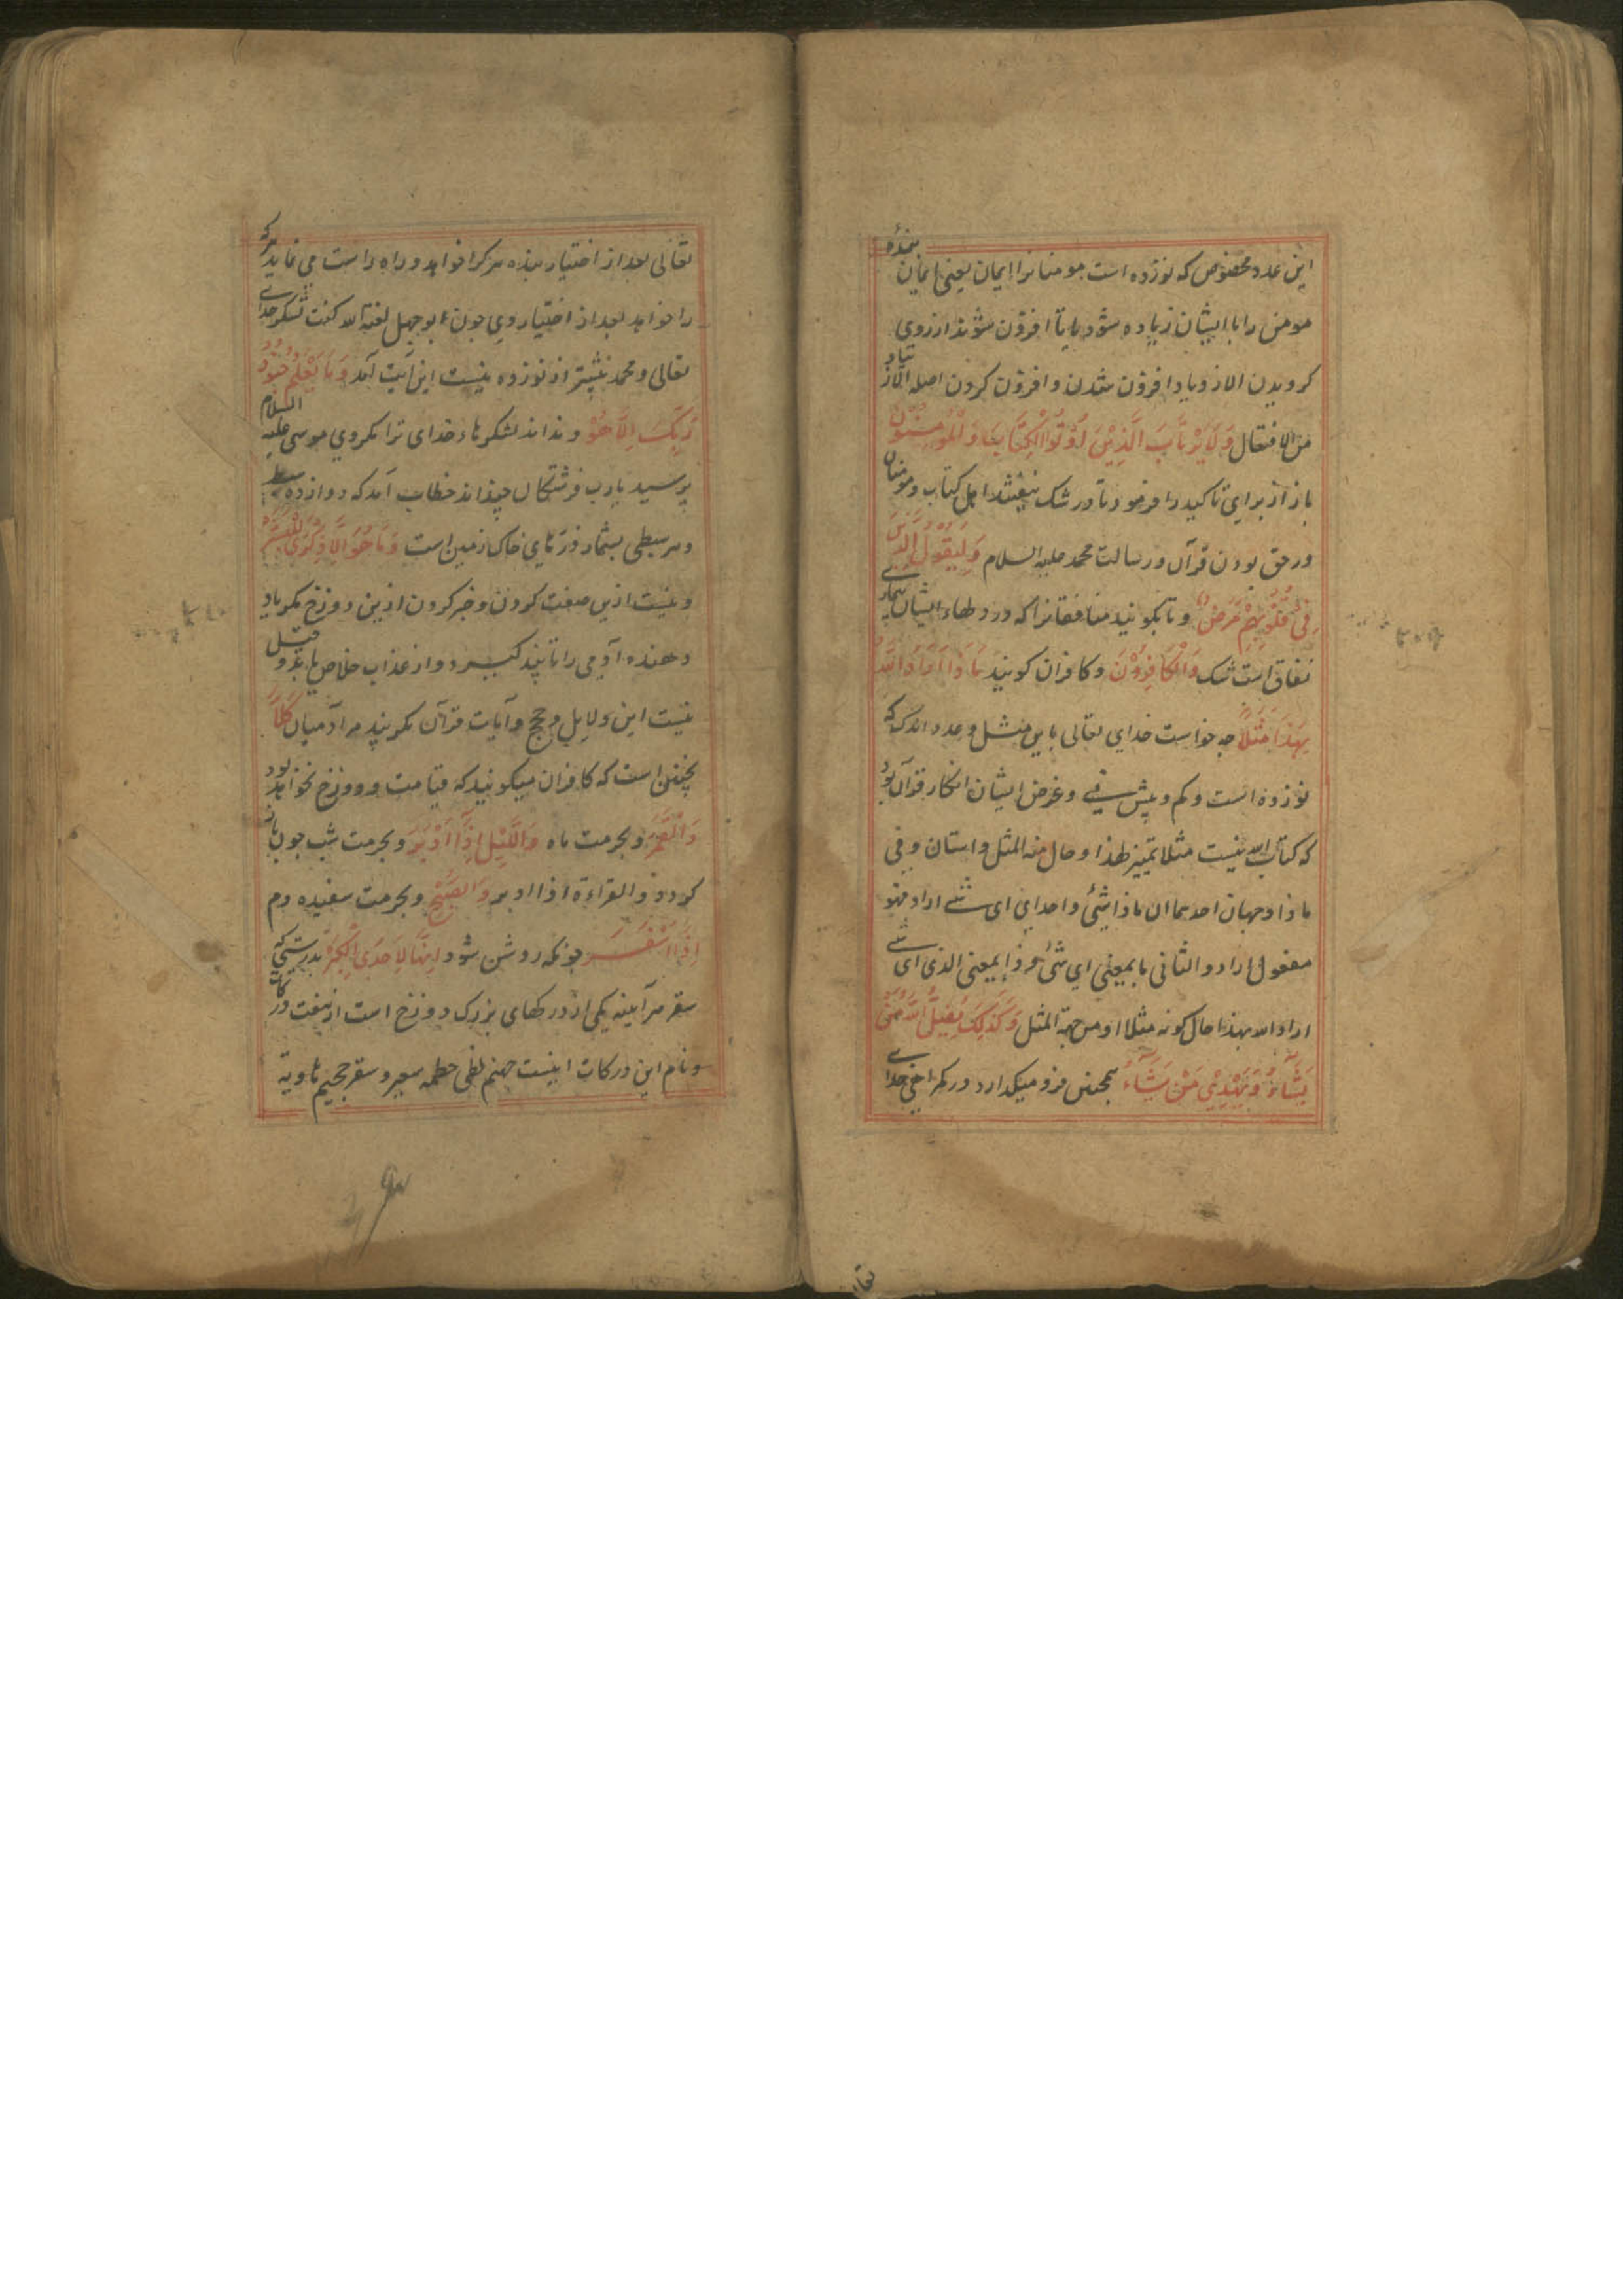 این عدد مخصوص که نوزده است مومنانرا ایمان یعنی ایمان
مومن را با ایشان زیاده شود یا تا افزون شوند از روی
کرویدن الازدیاد افزون شدن و افزون کردن اصله الازتیاد
من الافتعال وَلَا يَرْتَابَ الَّذِيْنَ اُوْتُوا الْكِتَابَ وَالْمُؤْمِنُوْنَ
باز از برای تاکید را فرمود تا در شک نیفتند اهل کتاب و مومنان
در حق بودن قرآن و رسالت محمد علیه السلام وَلِيَقُوْلَ الَّذِيْنَ
فِيْ قُلُوْبِهِمْ مَرَضٌ و تا بکویند منافقانرا که در دلهاء ایشان بیماری
نفاق است شک وَالْكَافِرُوْنَ و کافران کویند مَاذَا اَرَادَ اللّٰهُ
بِهٰذَا مَثَلًا چه خواست خدای تعالی باین مثل و عدد اندک که
نوزده است و کم و بیش نی و غرض ایشان انکار قرآن بود
که کتاب الله نیست مثلا تمییز لهذا و حال منه المثل داستان و فی
ماذا وجهان احدهما ان ماذا شیٔ واحد ای ای شیٔ اراد فهو
مفعول اراد والثانی ما بمعنی ای شیٔ و ذا بمعنی الذی ای شیٔ
اراد الله بهذا حال کونه مثلا او من جهة المثل وَكَذٰلِكَ يُضِلُّ اللّٰهُ مَنْ
يَشَاءُ وَيَهْدِيْ مَنْ يَشَاءُ همچنین فرو میکذارد در کمراهی خدای
تعالی بعد از اختیار بنده هر کرا خواهد و راه راست می نماید هر که
را خواهد بعد از اختیار وی چون ابوجهل لعنه الله کفت لشکر خدای
تعالی و محمد بیشتر از نوزده نیست این آیت آمد وَمَا يَعْلَمُ جُنُوْدَ
رَبِّكَ اِلَّا هُوَ و نداند لشکرهاء خدای ترا مکر وی موسی علیه السلام
پرسید یا رب فرشتکان چند اند خطاب آمد که دوازده سبط
و هر سبطی بشمار ذرهای خاک زمین است وَمَا هِيَ اِلَّا ذِكْرٰى لِلْبَشَرِ
و نیست ازین صفت کردن و خبر کردن ازین دوزخ مکر یاد
دهنده آدمی را تا پند کیرد و از عذاب خلاص یابد و قیل
نیست این دلایل و حجج و آیات قرآن مکر پند مر آدمیان كَلَّا
نچنین است که کافران میکویند که قیامت و دوزخ نخواهد بود
وَالْقَمَرِ و بحرمت ماه وَالَّيْلِ اِذَا اَدْبَرَ و بحرمت شب چون باز
کردد والقراءة اذا ادبر وَالصُّبْحِ و بحرمت سفیده دم
اِذَا اَسْفَرَ چونکه روشن شود اِنَّهَا لَاِحْدَى الْكُبَرِ بدرستی که
سقر هر آیینه یکی از درکهای بزرک دوزخ است از هفت درکات
و نام این درکات اینست جهنم لظی حطمه سعیر سقر جحیم هاویة
تعا